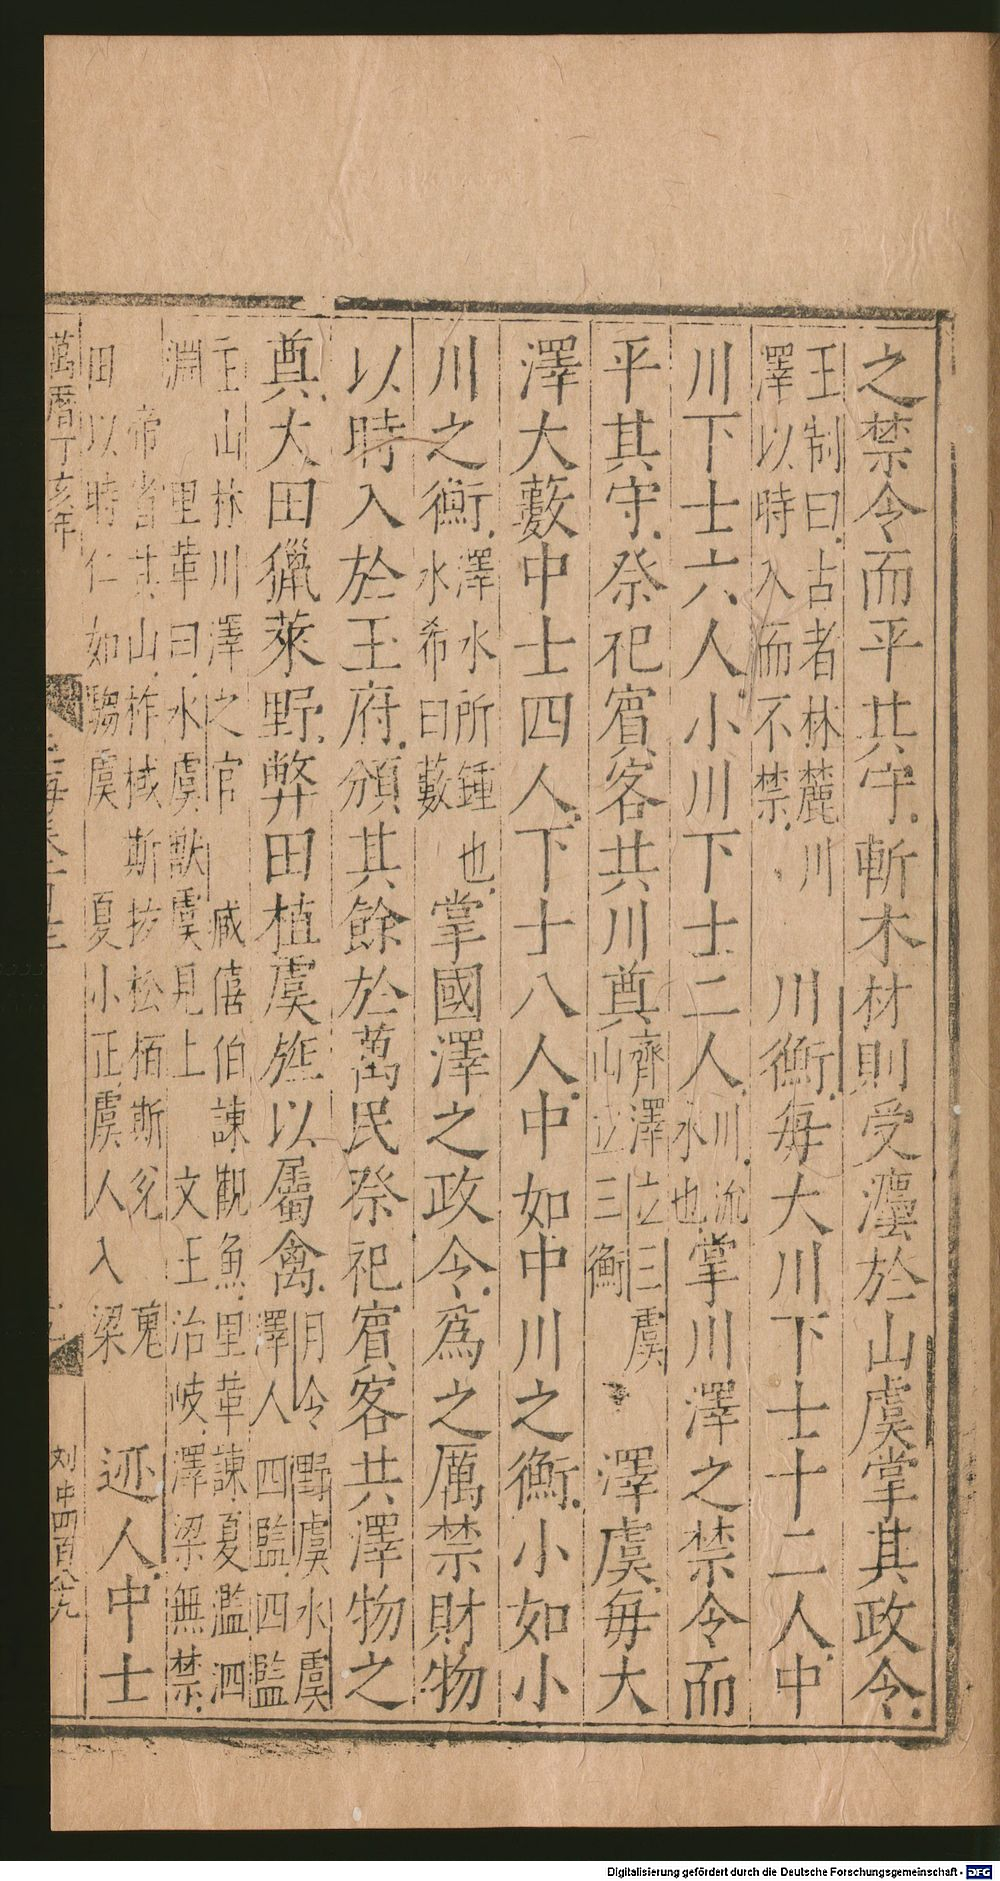 之禁令而平其守斬木材則受灋於山虞掌其政令
王制曰古者林麓川
澤以時入而不禁
川衡每大川下士十二人中
川下士六人小川下士二人
川流
水也
掌川澤之禁令而
平其守祭祀賔客共川奠
齊澤立三虞
山立三衡
澤虞每大
澤大藪中士四人下士八人中如中川之衡小如小
川之衡
澤水所鍾也
水希曰藪
掌國澤之政令為之厲禁財物
以時入於王府頒其餘於萬民祭祀賔客共澤物之
奠大田獵萊野弊田植虞旌以屬禽
月令野虞水虞
澤人四監四監
主山林川澤之官 臧僖伯諫觀魚里革諫夏濫泗
淵 里革曰水虞獸虞見上 文王治岐澤梁無禁
帝省其山柞棫斯拔松栢斯兊 蒐
田以時仁如騶虞 夏小正虞人入梁
迹人中士
萬曆丁亥年
刘中四百八十九
Digitalisierung gefördert durch die Deutsche Forschungsgemeinschaft - DFG